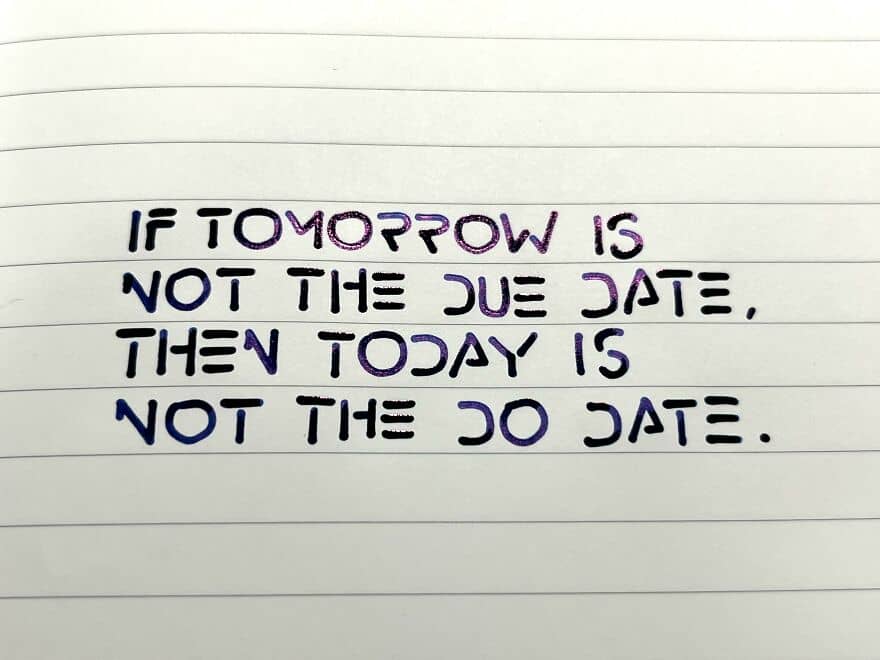 IF TOMORROW IS
NOT THE DUE DATE,
THEN TODAY IS
NOT THE DO DATE.